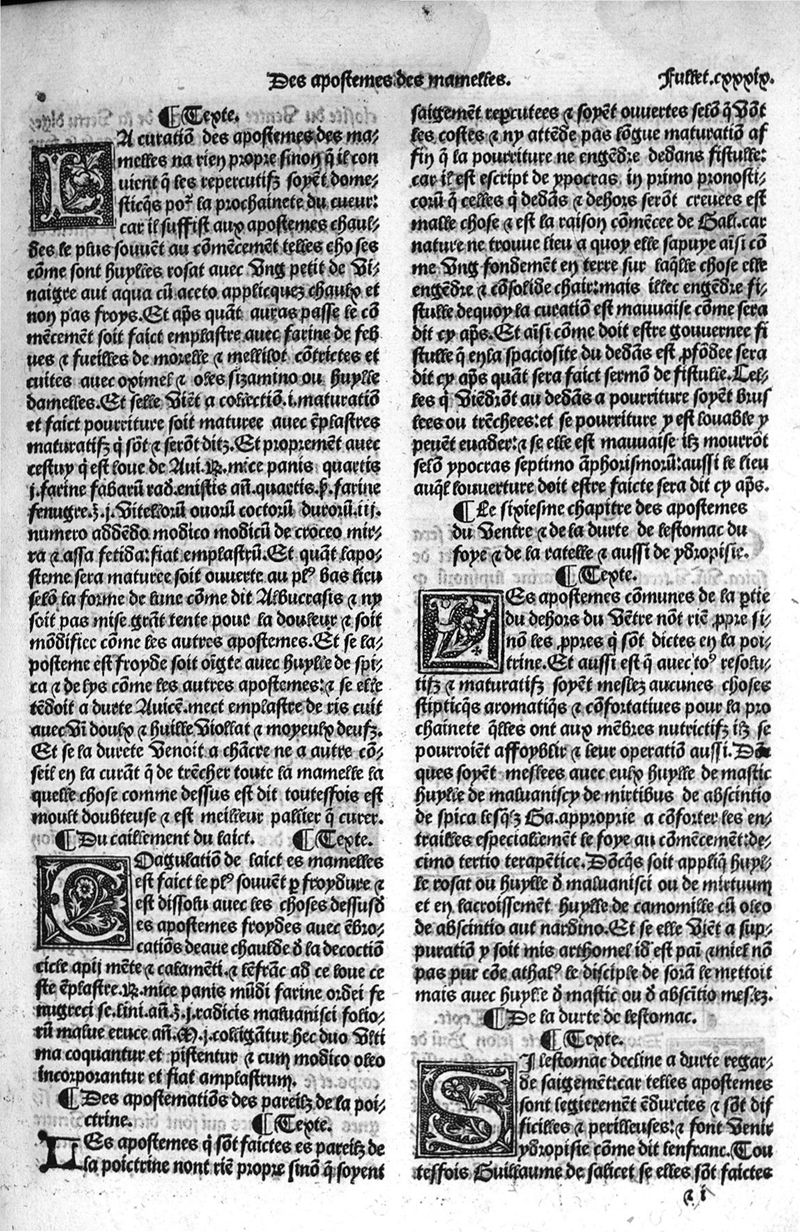 Des apostemes des mamelles.
Fullet.cxxxix.
¶ Texte.
LA curatiõ des apostemes des ma-
melles na rien propre sinon q̃ il con
uient q̃ les repercutifz soyẽt dome-
sticq̃s poʳ la prochainete du cueur:
car il suffist aux apostemes chaul-
des le plus souuẽt au cõmẽcemẽt telles choses
cõme sont huylles rosat auec vng petit de vi-
naigre aut aqua cũ aceto applicquez chaulx et
non pas froys. Et ap̃s quãt auras passe le cõ
mẽcement soit faict emplastre auec farine de feb
ues ⁊ fueilles de morelle ⁊ mellilot cõtrictes et
cuites auec oximel ⁊ oles sizamino ou huylle
damelles. Et selle viẽt a collectiõ .i. maturatiõ
et faict pourriture soit maturee auec ẽplastres
maturatifz q̃ sõt ⁊ serõt ditz. Et proprement auec
cestuy q̃ est loue de Aui. ℞. mice panis quartis
j. farine fabarũ rad. enistis añ. quartis. ꝑ. farine
fenugre. ℥. j. vitellorũ ouorũ coctorũ durorũ. iij.
numero addẽdo modico modicũ de croceo mir-
ra ⁊ assa fetida: fiat emplastrũ. Et quãt lapo-
steme sera maturee soit ouuerte au plˀ bas lieu
selõ la forme de lune cõme dit Albucrasis ⁊ ny
soit pas mise grãt tente pour la douleur ⁊ soit
mõdifiee cõme les autres apostemes. Et se la-
posteme est froyde soit oĩgte auec huylle de spi-
ca ⁊ de lys cõme les autres apostemes: ⁊ se elle
tẽdoit a durte Auicẽ. mect emplastre de ris cuit
auec vĩ doulx ⁊ huille viollat ⁊ moyeulx deufz.
Et se la durete venoit a chãcre ne a autre cõ-
seil en la curãt q̃ de trẽcher toute la mamelle la
quelle chose comme dessus est dit toutesfois est
moult doubteuse ⁊ est meilleur pallier q̃ curer.
¶ Du caillement du laict. ¶ Texte.
COagulatiõ de laict es mamelles
est faict le plˀ souuẽt ꝑ froydure ⁊
est dissolu auec les choses dessusd
es apostemes froydes auec ẽbro-
catiõs deaue chaulde d̃ la decoctiõ
cicle apij mẽte ⁊ calamẽti. ⁊ lẽfrãc ad ce loue ce
ste ẽplastre. ℞. mice panis mũdi farine ordei fe
nugreci se. lini. añ. ℥. j. radicis maluanisci folio-
rũ malue eruce añ. M. j. colligãtur hec duo vlti
ma coquantur et pistentur ⁊ cum modico oleo
incorporantur et fiat amplastrum.
¶ Des apostematiõs des pareitz de la poi-
ctrine. ¶ Texte.
LEs apostemes q̃ sõt faictes es pareitz de
la poictrine nont riẽ propre sinõ q̃ soyent
saigemẽt repcutees ⁊ soyẽt ouuertes selõ q̃ võt
les costes ⁊ ny attẽde pas lõgue maturatiõ af
fin q̃ la pourriture ne engẽdre dedãs fistulle:
car il est escript de ypocras, in primo pronosti-
corũ q̃ celles q̃ dedãs ⁊ dehors serõt creuees est
malle chose ⁊ est la raison cõmẽcee de Gali. car
nature ne trouue lieu a quoy elle sapuye aĩsi cõ
me vng fondemẽt en terre sur laq̃lle chose elle
engẽdre ⁊ cõsolide chair: mais illec engẽdre fi-
stulle dequoy la curatiõ est mauuaise cõme sera
dit cy ap̃s. Et aĩsi cõme doit estre gouuernee fi
stulle q̃ en la spaciosite du dedãs est ꝓfõdee sera
dit cy ap̃s quãt sera faict sermõ de fistulle. Cel-
les q̃ viẽdrõt au dedãs a pourriture soyẽt brus
lees ou trẽchees: et se pourriture y est louable y
peuẽt euader: ⁊ se elle est mauuaise ilz mourrõt
selõ ypocras septimo ãphorismorũ: aussi le lieu
auq̃l louuerture doit estre faicte sera dit cy ap̃s.
¶ Le sixiesme chapitre des apostemes
du ventre ⁊ de la durte de lestomac du
foye ⁊ de la ratelle ⁊ aussi de ydropisie.
¶ Texte.
LEs apostemes cõmunes de la ꝑtie
du dehors du vẽtre nõt riẽ ꝓpre si-
nõ les ꝓpres q̃ sõt dictes en la poi-
trine. Et aussi est q̃ auec toˀ resolu-
tifz ⁊ maturatifz soyẽt meslez aucunes choses
stipticq̃s aromatiq̃s ⁊ cõfortatiues pour la pro
chainete q̃lles ont aux mẽbres nutrictifz ilz se
pourroiẽt affoyblir ⁊ leur operatiõ aussi. Dõc
ques soyẽt meslees auec eulx huylle de mastic
huylle de maluaniscy de mirtibus de abscintio
de spica lesq̃lz Ga. approprie a cõforter les en-
trailles especialemẽt le foye au cõmẽcemẽt: de-
cimo tertio terapẽtice. Dõcq̃s soit appliq̃ huyl-
le rosat ou huylle d̃ maluanisci ou de mirtuum
et en lacroissemẽt huylle de camomille cũ oleo
de abscintio aut nardino. Et se elle viẽt a sup-
puratiõ y soit mis arthomel id est paĩ ⁊ miel nõ
pas pur cõe athalˀ le disciple de sorã le mettoit
mais auec huylle d̃ mastic ou d̃ abscĩtio meslez.
¶ De la durte de lestomac.
¶ Texte.
SI lestomac decline a durte regar-
de saigemẽt: car telles apostemes
sont legierement ẽdurcies ⁊ sõt dif
ficilles ⁊ perilleuses: ⁊ font venir
ydropisie cõme dit lenfranc. Tou
tesfois Guillaume de salicet se elles sõt faictes
z i